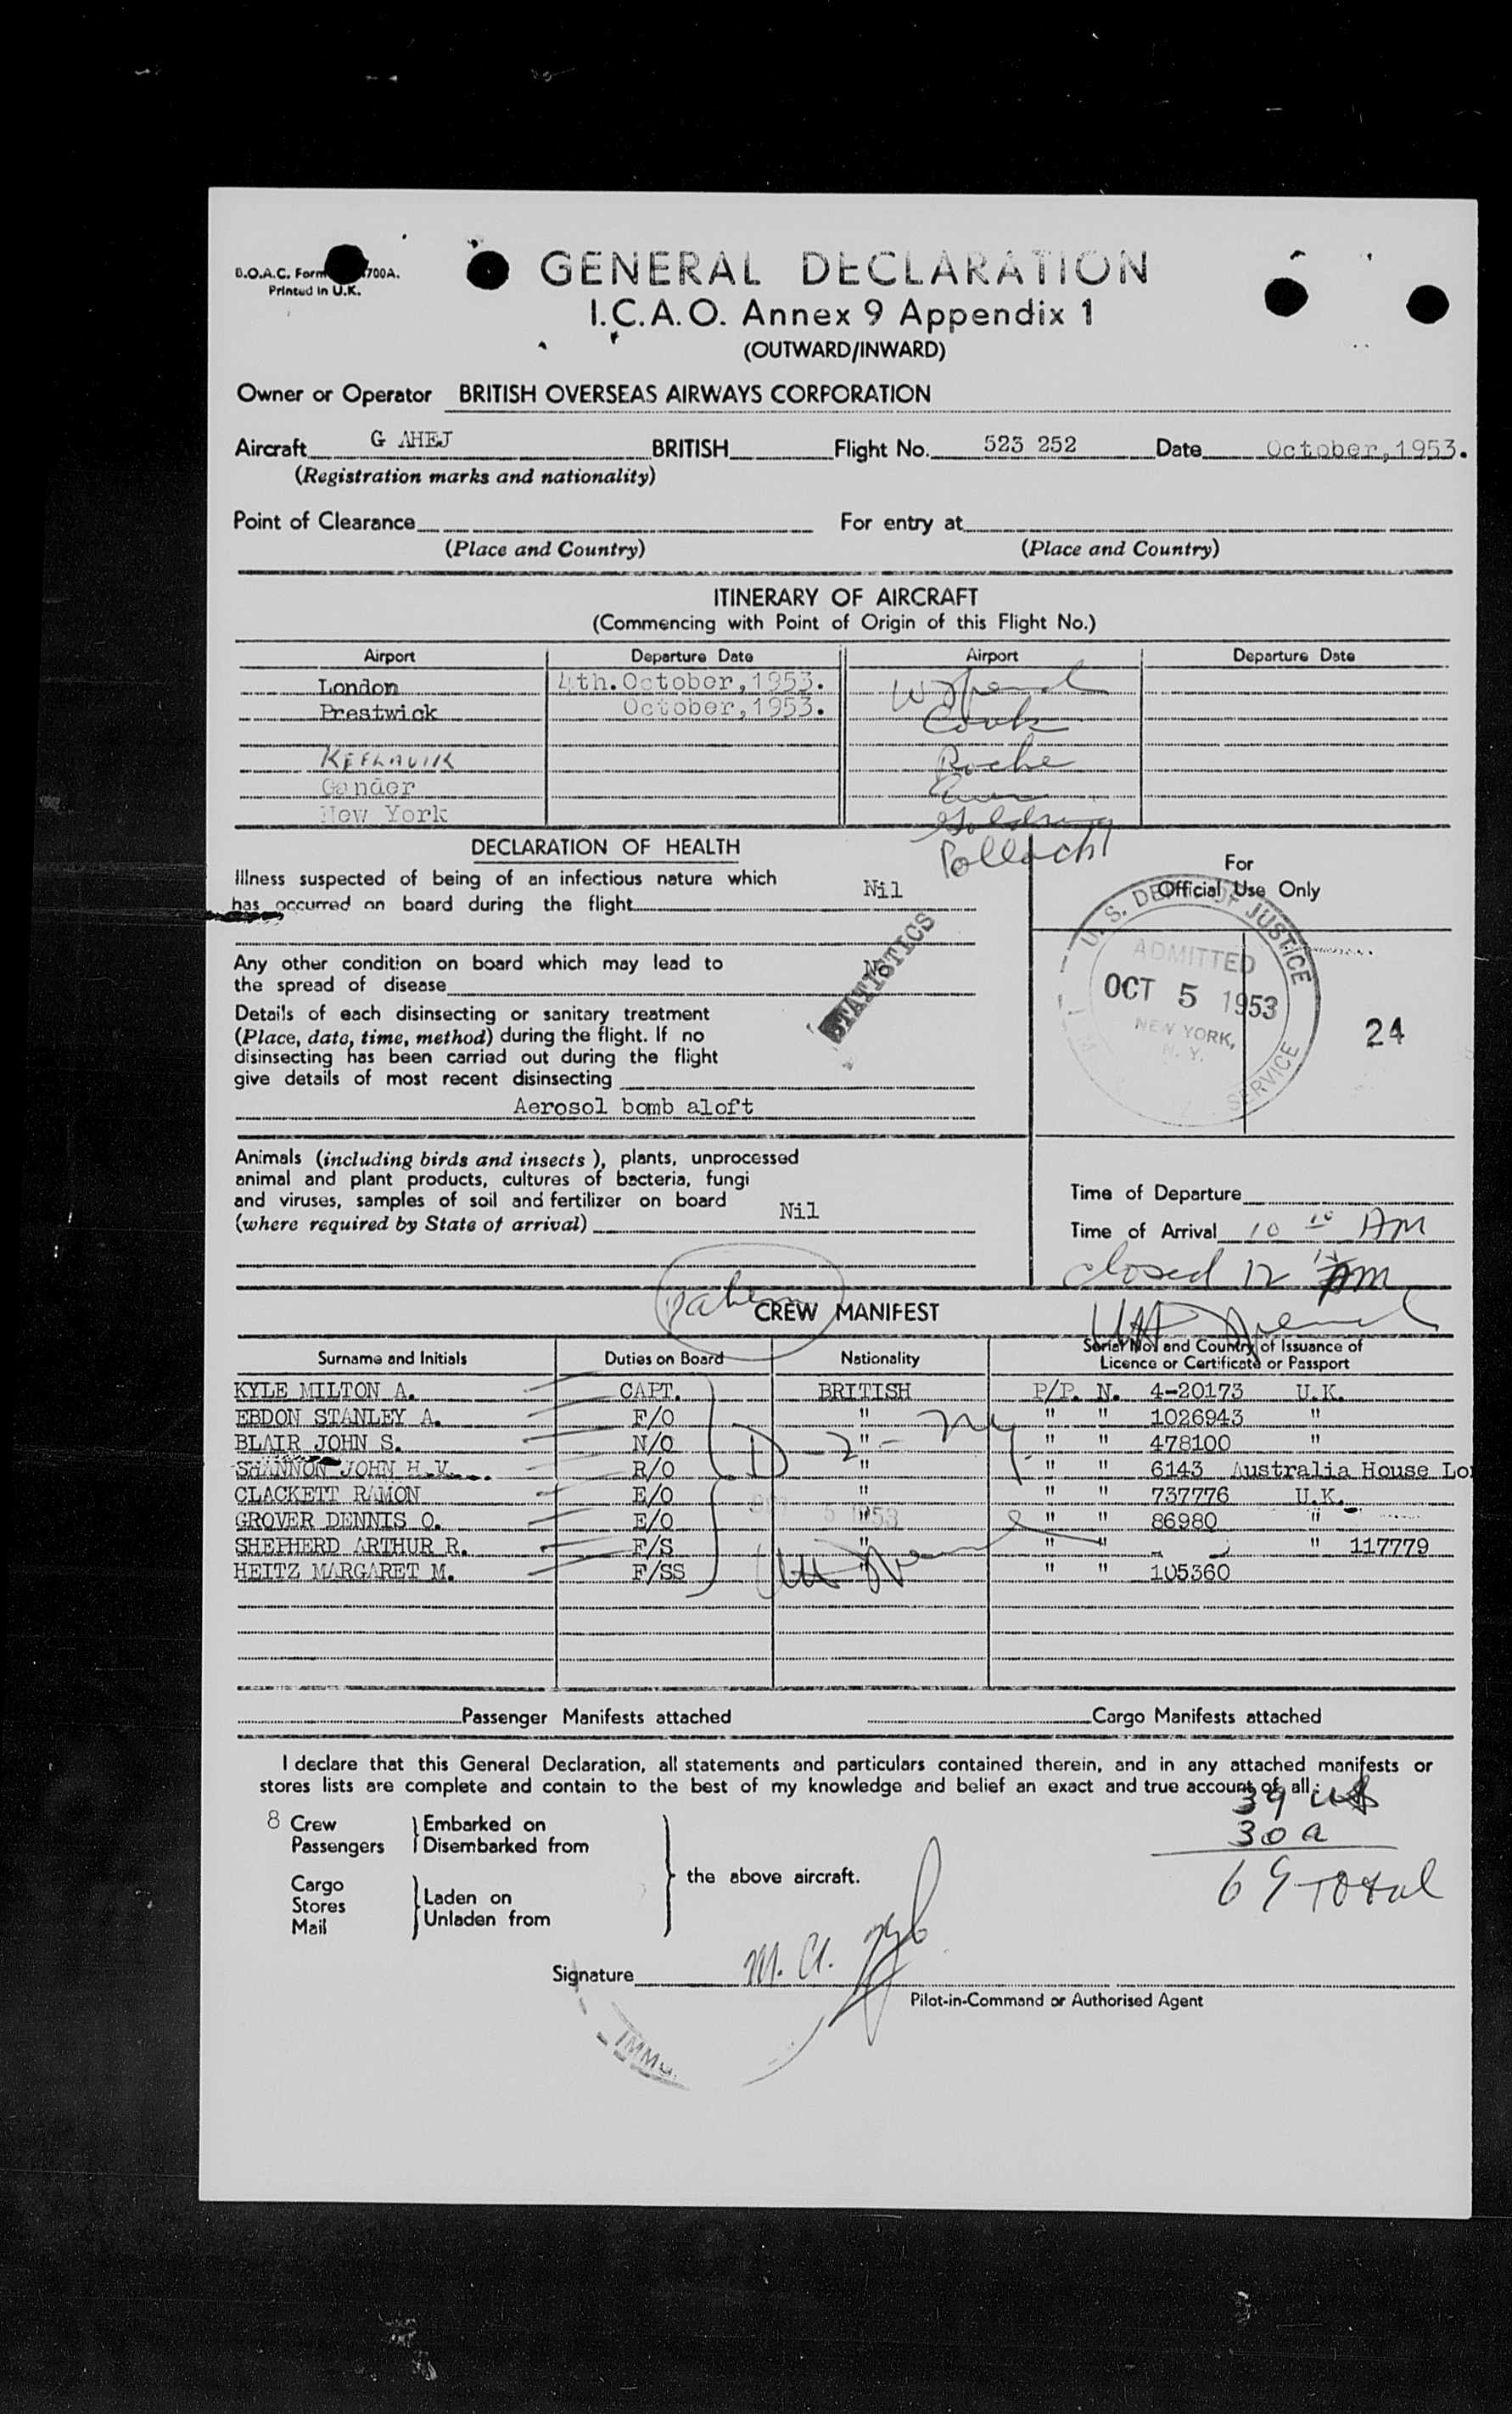 B.O.A.C. Form 700A.
Printed in U.K.
GENERAL DECLARATION
I.C.A.O. Annex 9 Appendix 1
(OUTWARD/INWARD)
Owner or Operator BRITISH OVERSEAS AIRWAYS CORPORATION
Aircraft G AHEJ BRITISH Flight No. 523 252 Date October, 1953.
(Registration marks and nationality)
Point of Clearance For entry at
(Place and Country) (Place and Country)
ITINERARY OF AIRCRAFT
(Commencing with Point of Origin of this Flight No.)
Airport Departure Date Airport Departure Date
London 4th. October, 1953.
Prestwick October, 1953. Cook
KEFLAVIK Roche
Gander
New York Goldring
DECLARATION OF HEALTH Pollack
Illness suspected of being of an infectious nature which
has occurred on board during the flight Nil
For
Official Use Only
Any other condition on board which may lead to
the spread of disease No
STATISTICS
Details of each disinsecting or sanitary treatment
(Place, date, time, method) during the flight. If no
disinsecting has been carried out during the flight
give details of most recent disinsecting
Aerosol bomb aloft
U. S. DEPT. OF JUSTICE
ADMITTED
OCT 5 1953
NEW YORK,
N. Y.
SERVICE
24
Animals (including birds and insects), plants, unprocessed
animal and plant products, cultures of bacteria, fungi
and viruses, samples of soil and fertilizer on board
(where required by State of arrival) Nil
Time of Departure
Time of Arrival 10 10 AM
closed 12 PM
CREW MANIFEST
Surname and Initials Duties on Board Nationality Serial No. and Country of Issuance of
Licence or Certificate or Passport
KYLE MILTON A. CAPT. BRITISH P/P. N. 4-20173 U.K.
EBDON STANLEY A. F/O " " " 1026943 "
BLAIR JOHN S. N/O " " " 478100 "
SHANNON JOHN H.V. R/O " " " 6143 Australia House Lo
CLACKETT RAMON E/O " " " 737776 U.K.
GROVER DENNIS O. E/O " " " 86980 "
SHEPHERD ARTHUR R. F/S " " " " 117779
HEITZ MARGARET M. F/SS " " 105360
D-2-NY
5 1953
Passenger Manifests attached Cargo Manifests attached
I declare that this General Declaration, all statements and particulars contained therein, and in any attached manifests or
stores lists are complete and contain to the best of my knowledge and belief an exact and true account of all:
39 US
30 a
69 Total
8 Crew Embarked on
Passengers Disembarked from
the above aircraft.
Cargo
Stores Laden on
Mail Unladen from
Signature M. A. Kyle
Pilot-in-Command or Authorised Agent
IMMG.